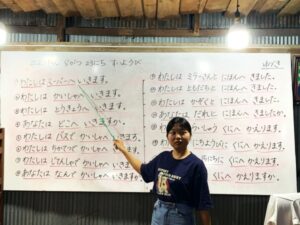 しがつ ようか すいようび
わたしは スーパーへ いきます。
わたしは かいしゃへ いきます。
わたしは とうきょうへ いきます。
あなたは どこへ いきますか。
わたしは バスで かいしゃへ いきます。
わたしは ちかてつで かいしゃへ いきます
わたしは じてんしゃで かいしゃへ いきます
あなたは なんで かいしゃへ いきますか
わたしは ミラーさんと にほんへ きました。
わたしは ともだちと にほんへ きました。
わたしは かぞくと にほんへ きました。
あなたは だれと にほんへ きましたか。
わたしは くにへ かえります。
くにへ かえります。
くにへ かえりますか。